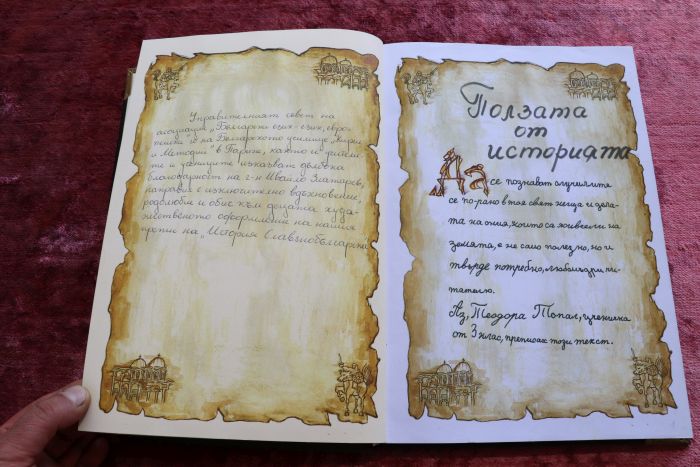 Управителният съвет на
асоциация „Български език - език, евро-
пейски" и на Българското училище „Кирил
и Методий" в Париж, както и учители-
те и учениците изказват дълбока
благодарност на г-н Ивайло Златарев,
направил с изключително вдъхновение,
родолюбие и обич към децата худо-
жественото оформление на нашия
препис на „История Славянобългарска
Ползата
от
историята
Да
се познават случилите
се по-рано в тоя свят неща и дела-
та на ония, които са живеели на
земята, е не само полезно, но и
твърде потребно, любомъдри чи-
тателю.
Аз, Теодора Топал, ученичка
от 3 клас, преписах този текст.